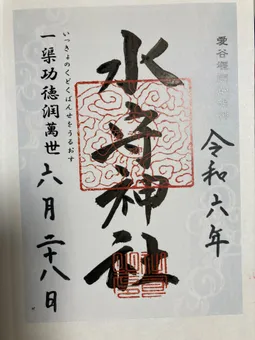 愛谷
令和六年
水守神社
いっきょのくどくばんせをうるおす
一渠功徳潤萬世
六月二十八日